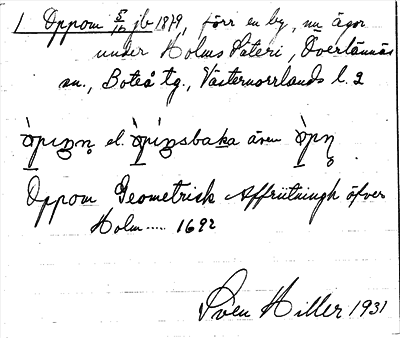 1 Öppom 5/12 jb 1879, förr en by, nu ägor
under Holms Säteri, Överlännäs
sn., Boteå tg., Västernorrlands l. 2
el. även
Öppom Geometrisk Affriitningh öfver
Holm..... 1692
Sven Hiller 1931